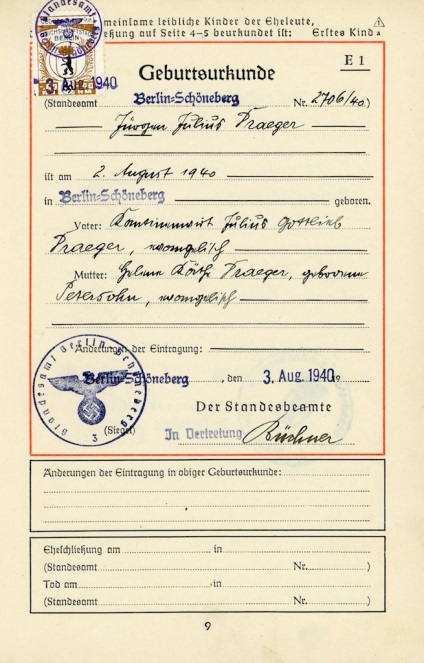 meinsame leibliche Kinder der Eheleute,
ßung auf Seite 4–5 beurkundet ist: Erstes Kind
Standesamt
BERLIN
3. Aug. 1940
E 1
Geburtsurkunde
(Standesamt Berlin-Schöneberg Nr. 2706/40.)
Jürgen Julius Praeger
ist am 2. August 1940
in Berlin-Schöneberg geboren.
Vater: Kantinenwirt Julius Gottlieb
Praeger, evangelisch
Mutter: Helene Käthe Praeger, geborene
Petersohn, evangelisch
Änderungen der Eintragung:
Berlin-Schöneberg, den 3. Aug. 1940 19
Standesamt Berlin Schöneberg
3
Der Standesbeamte
(Siegel) In Vertretung Büchner
Änderungen der Eintragung in obiger Geburtsurkunde:
Eheschließung am in
(Standesamt Nr. )
Tod am in
(Standesamt Nr. )
9